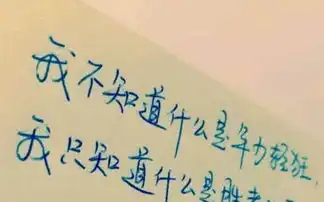 我不知道什么是年力轻狂,
我只知道什么是胜者